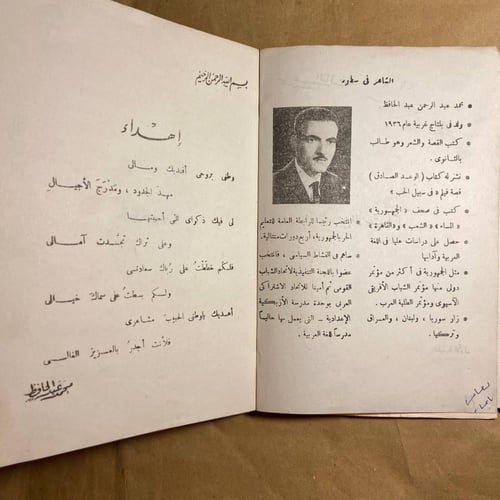 بسم الله الرحمن الرحيم
إهداء
وطني بروحي أفتديك ومالي
مهد الجدود ، ومدرج الأجيال
لي فيك ذكراي التي أحببتها
وعلى ثراك تجسدت آمالي
فلكم خطفت على رباك سعادتي
ولكم بسطت على سماك خيالي
أهديك ياوطني الحبيب مشاعري
فلأنت أجدر بالعزيز الغالي
محمد عبد الحافظ
الشاعر في سطور
محمد عبد الرحمن عبد الحافظ
ولد في بلتاج غربية عام ١٩٣٦
كتب القصة والشعر وهو طالب
بالثانوي .
نشر له كتاب ( الوعد الصادق )
قصة فيلم « في سبيل الحب »
كتب في صحف « الجمهورية »
« المساء » « الشعب » و« القاهرة »
حصل على دراسات عليا في اللغة
العربية وآدابها
مثل الجمهورية في أكثر من مؤتمر
دولي منها مؤتمر الشباب الأفريقي
الآسيوي ومؤتمر الطلبة العرب .
زار سوريا ، ولبنان ، والعراق
وتركيا .
انتخب رئيسا للرابطة العامة للتعليم
الحر بالجمهورية، أربع دورات متتالية.
ساهم في النشاط السياسي ، فانتخب
عضوا باللجنة التنفيذية لاتحاد الشباب
القومي ثم أمينا للاتحاد الاشتراكي
العربي بوحدة مدرسة الأزبكية
الإعدادية ــ التي يعمل بها حاليا
مدرسا للغة العربية .